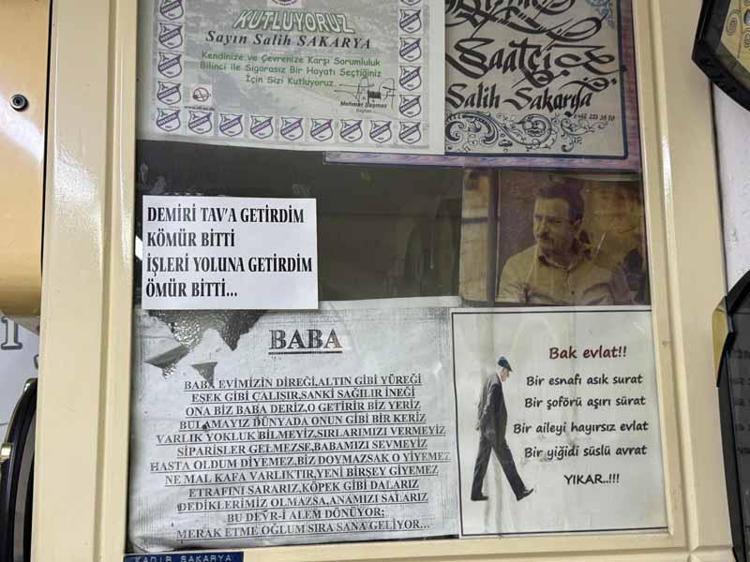 KUTLUYORUZ
Sayın Salih SAKARYA
Kendinize ve Çevrenize Karşı Sorumluluk
Bilinci ile Sigarasız Bir Hayatı Seçtiğiniz
İçin Sizi Kutluyoruz
Saatçi
Salih Sakarya
DEMİRİ TAV'A GETİRDİM
KÖMÜR BİTTİ
İŞLERİ YOLUNA GETİRDİM
ÖMÜR BİTTİ...
BABA
BABA EVİMİZİN DİREĞİ,ALTIN GİBİ YÜREĞİ
EŞEK GİBİ ÇALIŞIR,SANKİ SAĞILIR İNEĞİ
ONA BİZ BABA DERİZ,O GETİRİR BİZ YERİZ
BULAMAYIZ DÜNYADA ONUN GİBİ BİR KERİZ
VARLIK YOKLUK BİLMEYİZ,SIRLARIMIZI VERMEYİZ
SİPARİŞLER GELMEZSE,BABAMIZI SEVMEYİZ
HASTA OLDUM DİYEMEZ,BİZ DOYMAZSAK O YİYEMEZ
NE MAL KAFA VARLIKTIR,YENİ BİRŞEY GİYEMEZ
ETRAFINI SARARIZ,KÖPEK GİBİ DALARIZ
DEDİKLERİMİZ OLMAZSA,ANAMIZI SALARIZ
BU DEVR-İ ALEM DÖNÜYOR;
MERAK ETME OĞLUM SIRA SANA GELİYOR...
Bak evlat!!
Bir esnafı asık surat
Bir şoförü aşırı sürat
Bir aileyi hayırsız evlat
Bir yiğidi süslü avrat
YIKAR..!!!
KADIR SAKARYA